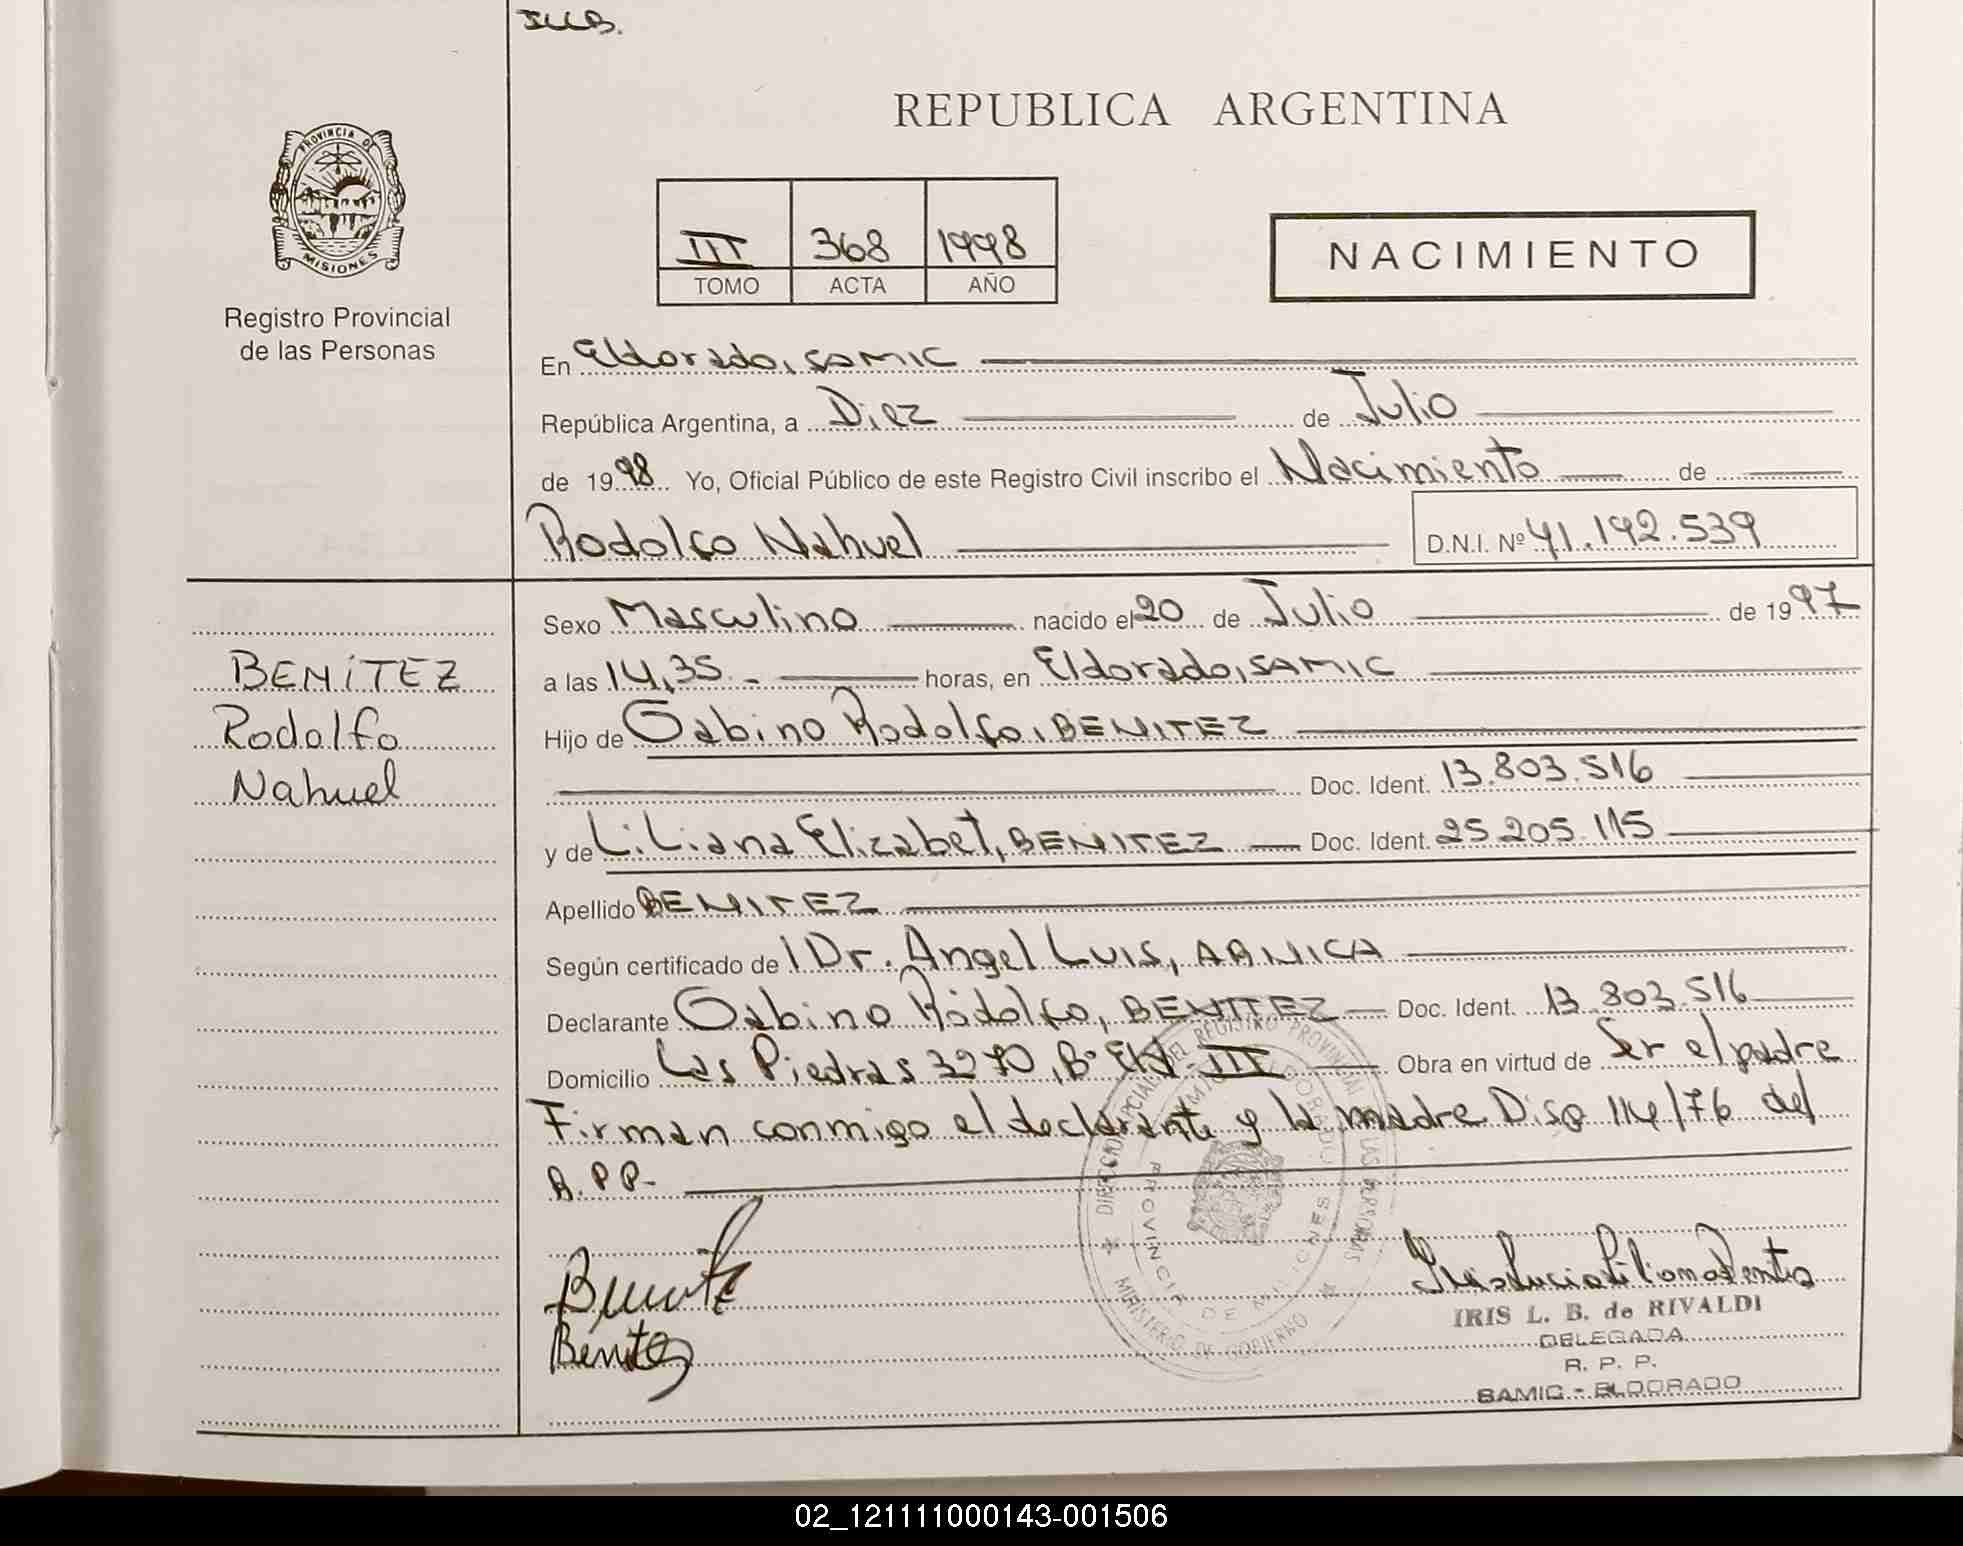 REPUBLICA ARGENTINA
PROVINCIA DE
MISIONES
Registro Provincial
de las Personas
III 368 1998
TOMO ACTA AÑO
NACIMIENTO
En Eldorado, SAMIC
República Argentina, a Diez de Julio
de 1998 Yo, Oficial Público de este Registro Civil inscribo el Nacimiento de
Rodolfo Nahuel D.N.I. Nº 41.192.539
BENITEZ
Rodolfo
Nahuel
Sexo Masculino nacido el 20 de Julio de 1997
a las 14,35.- horas, en Eldorado, SAMIC
Hijo de Gabino Rodolfo, BENITEZ
Doc. Ident. 13.803.516
y de Liliana Elizabet, BENITEZ Doc. Ident. 25.205.115
Apellido BENITEZ
Según certificado de Dr. Angel Luis, ARNICA
Declarante Gabino Rodolfo, BENITEZ Doc. Ident. 13.803.516
Domicilio Las Piedras 3270, Bº III Obra en virtud de Ser el padre
Firman conmigo el declarante y la madre Disp 114/76 del
R.P.P.
DIRECCION PROVINCIAL DEL REGISTRO PROVINCIAL DE LAS PERSONAS
ELDORADO
PROVINCIA DE MISIONES
MINISTERIO DE GOBIERNO
Benitez
Benitez
IRIS L. B. de RIVALDI
DELEGADA
R. P. P.
SAMIC - ELDORADO
02_121111000143-001506